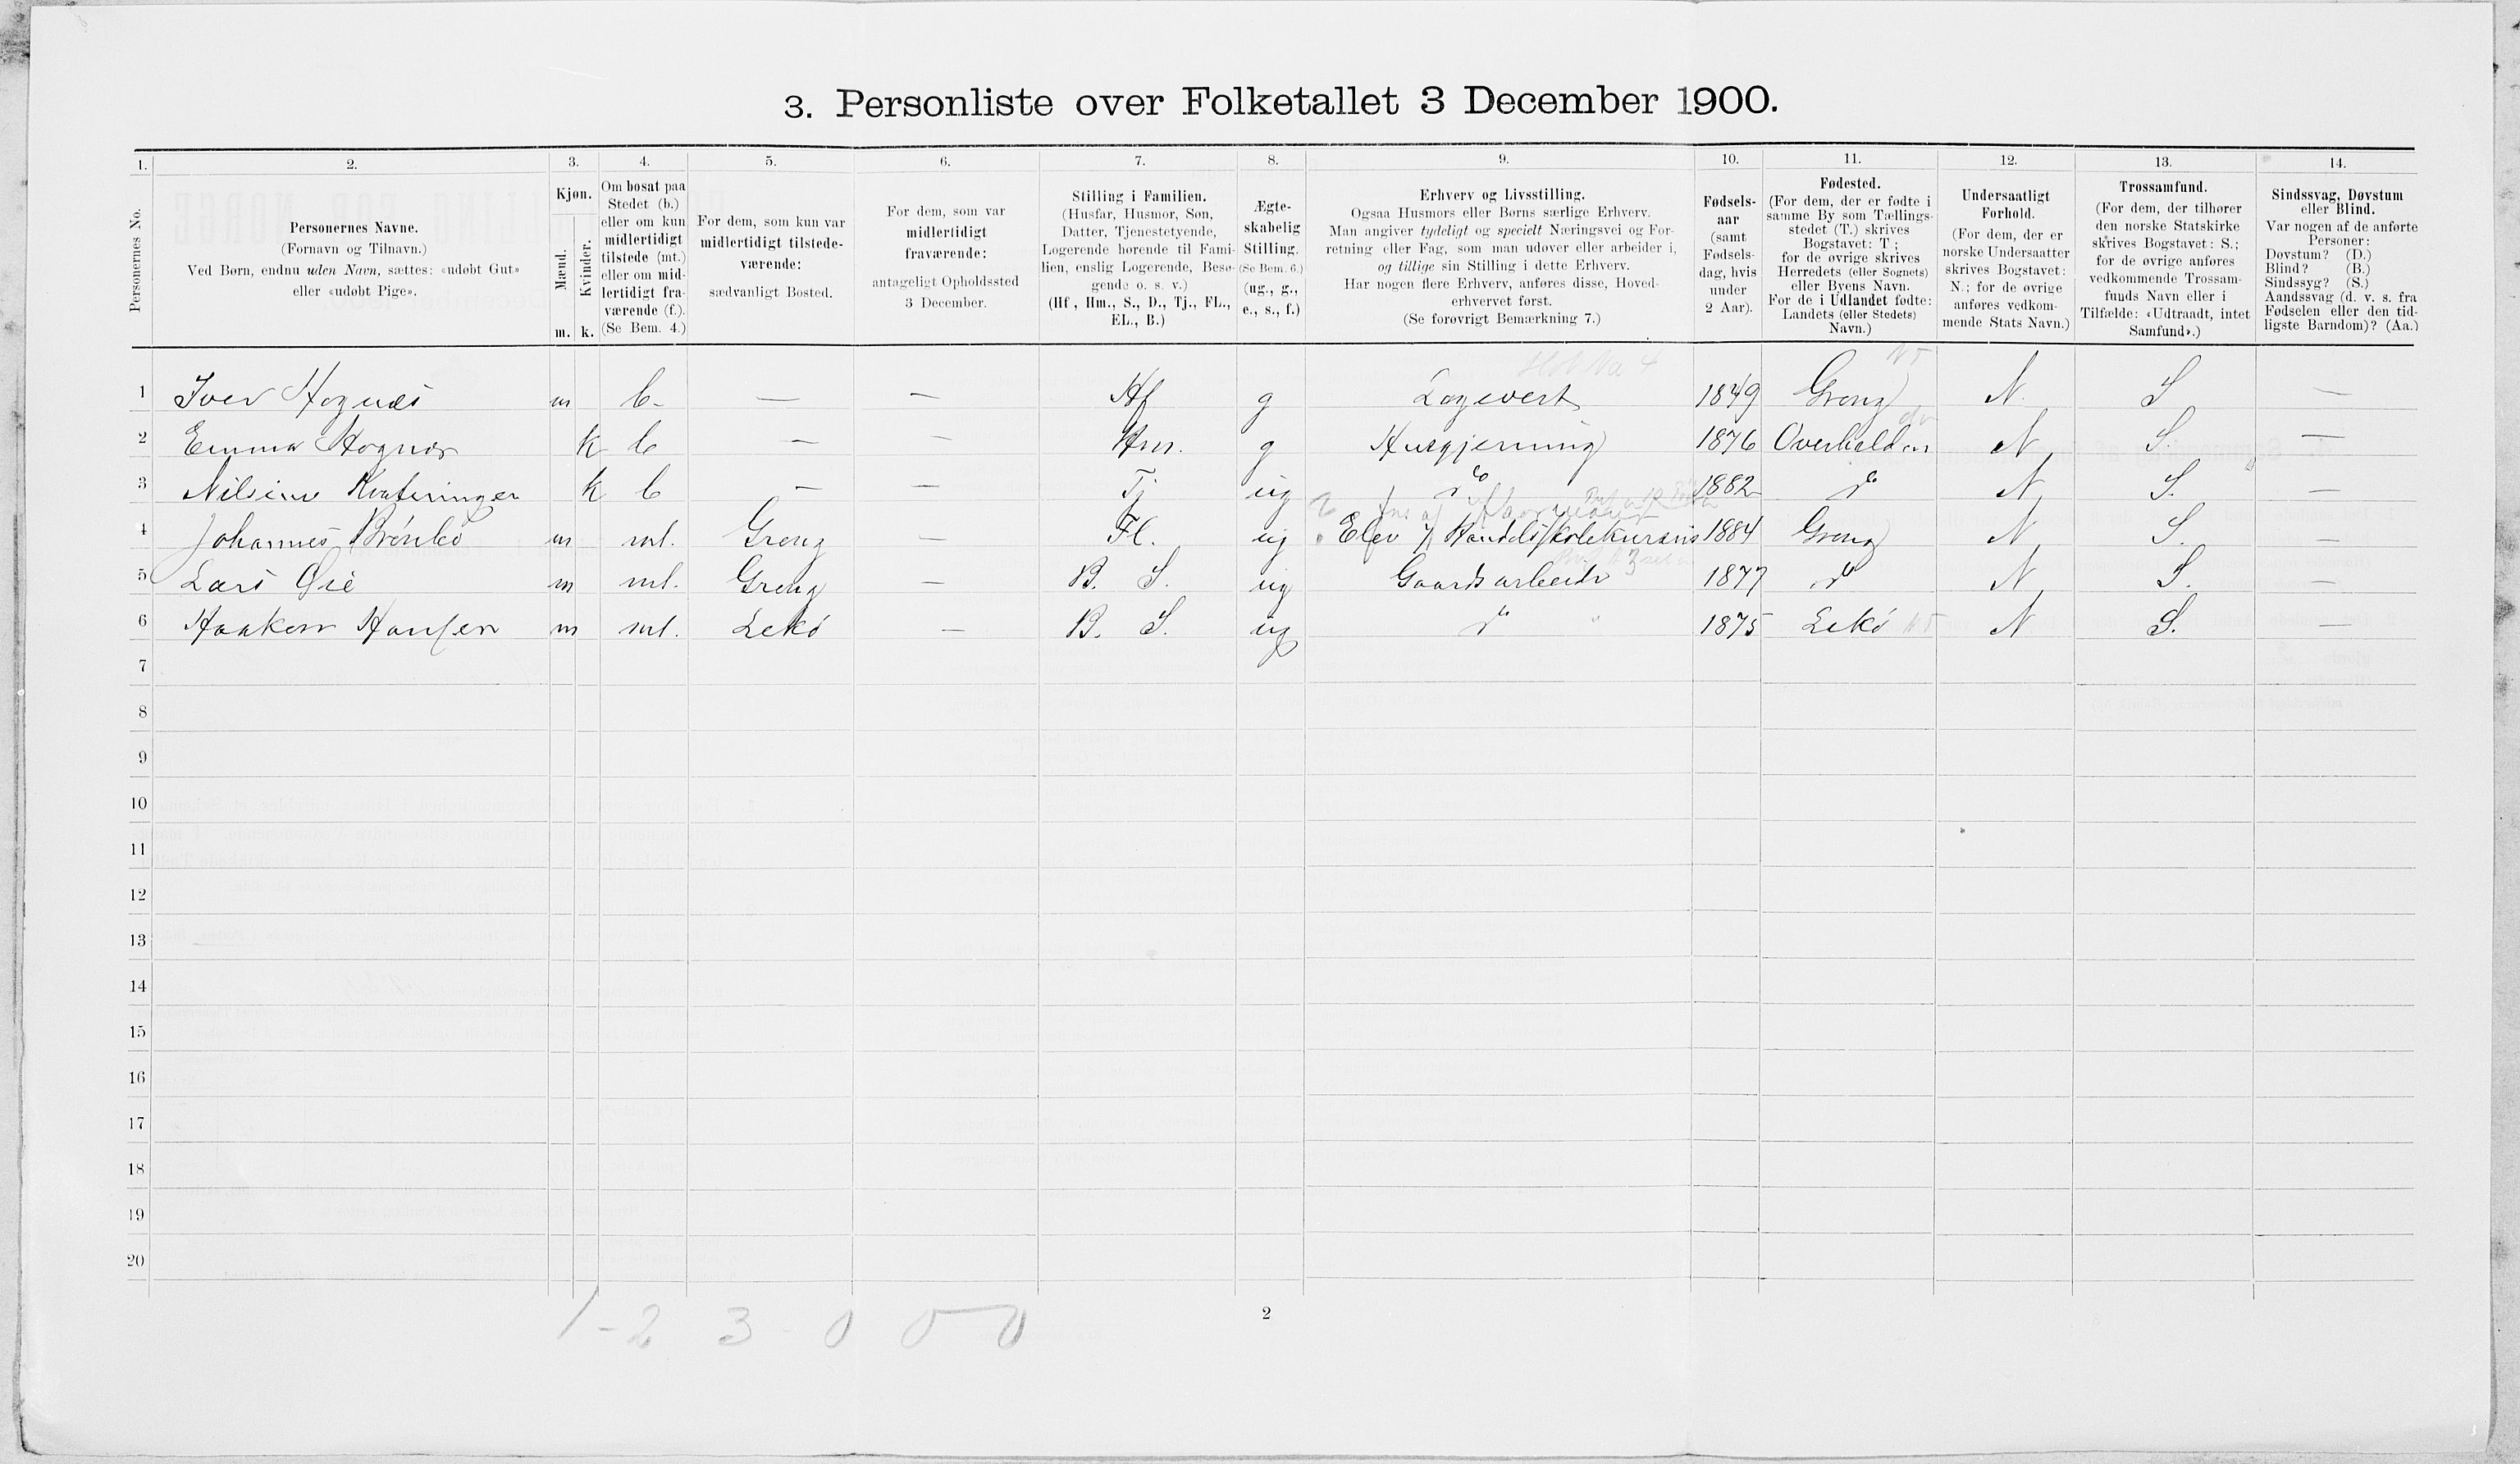 3. Personliste over Folketallet 3 December 1900.
1. 2. 3. 4. 5. 6. 7. 8. 9. 10. 11. 12. 13. 14.
Personernes No.
Personernes Navne.
(Fornavn og Tilnavn.)
Ved Børn, endnu uden Navn, sættes: «udøbt Gut»
eller «udøbt Pige».
Kjøn.
Mænd.
Kvinder.
m. k.
Om bosat paa
Stedet (b.)
eller om kun
midlertidigt
tilstede (mt.)
eller om mid-
lertidigt fra-
værende (f.).
(Se Bem. 4.)
For dem, som kun var
midlertidigt tilstede-
værende:
sædvanligt Bosted.
For dem, som var
midlertidigt
fraværende:
antageligt Opholdssted
3 December.
Stilling i Familien.
(Husfar, Husmor, Søn,
Datter, Tjenestetyende,
Logerende hørende til Fami-
lien, enslig Logerende, Besø-
gende o. s. v.)
(Hf., Hm., S., D., Tj., FL.,
EL., B.)
Ægte-
skabelig
Stilling.
(Se Bem. 6.)
(ug., g.,
e., s., f.)
Erhverv og Livsstilling.
Ogsaa Husmors eller Børns særlige Erhverv.
Man angiver tydeligt og specielt Næringsvei og For-
retning eller Fag, som man udøver eller arbeider i,
og tillige sin Stilling i dette Erhverv.
Har nogen flere Erhverv, anføres disse, Hoved-
erhvervet først.
(Se forøvrigt Bemærkning 7.)
Fødsels-
aar
(samt
Fødsels-
dag, hvis
under
2 Aar).
Fødested.
(For dem, der er fødte i
samme By som Tællings-
stedet (T.) skrives
Bogstavet: T;
for de øvrige skrives
Herredets (eller Sognets)
eller Byens Navn.
For de i Udlandet fødte:
Landets (eller Stedets)
Navn.)
Undersaatligt
Forhold.
(For dem, der er
norske Undersaatter
skrives Bogstavet:
N.; for de øvrige
anføres vedkom-
mende Stats Navn.)
Trossamfund.
(For dem, der tilhører
den norske Statskirke
skrives Bogstavet: S.;
for de øvrige anføres
vedkommende Trossam-
funds Navn eller i
Tilfælde: «Udtraadt, intet
Samfund».)
Sindssvag, Døvstum
eller Blind.
Var nogen af de anførte
Personer:
Døvstum? (D.)
Blind? (B.)
Sindssyg? (S.)
Aandssvag (d. v. s. fra
Fødselen eller den tid-
ligste Barndom)? (Aa.)
1 Iver Hognæs m b – — — Hf g Logevert 1849 Grong N. S —
2 Emma Hognæs k b — — Hm. g Husgjerning 1876 Overhalden N S. —
3 k b — — Tj ug do 1882 do N. S. —
4 Johannes m mt. Grong — Fl. ug Elev 1884 Grong N S. —
5 Lars Øie m mt. Grong — B. S. ug Gaardsarbeide 1877 do N S. —
6 Haakon Hansen m mt. Lekø — B. S. ug do " 1875 Lekø N S. —
7
8
9
10
11
12
13
14
15
16
17
18
19
20
1 - 2 3 - 0 0 0
2